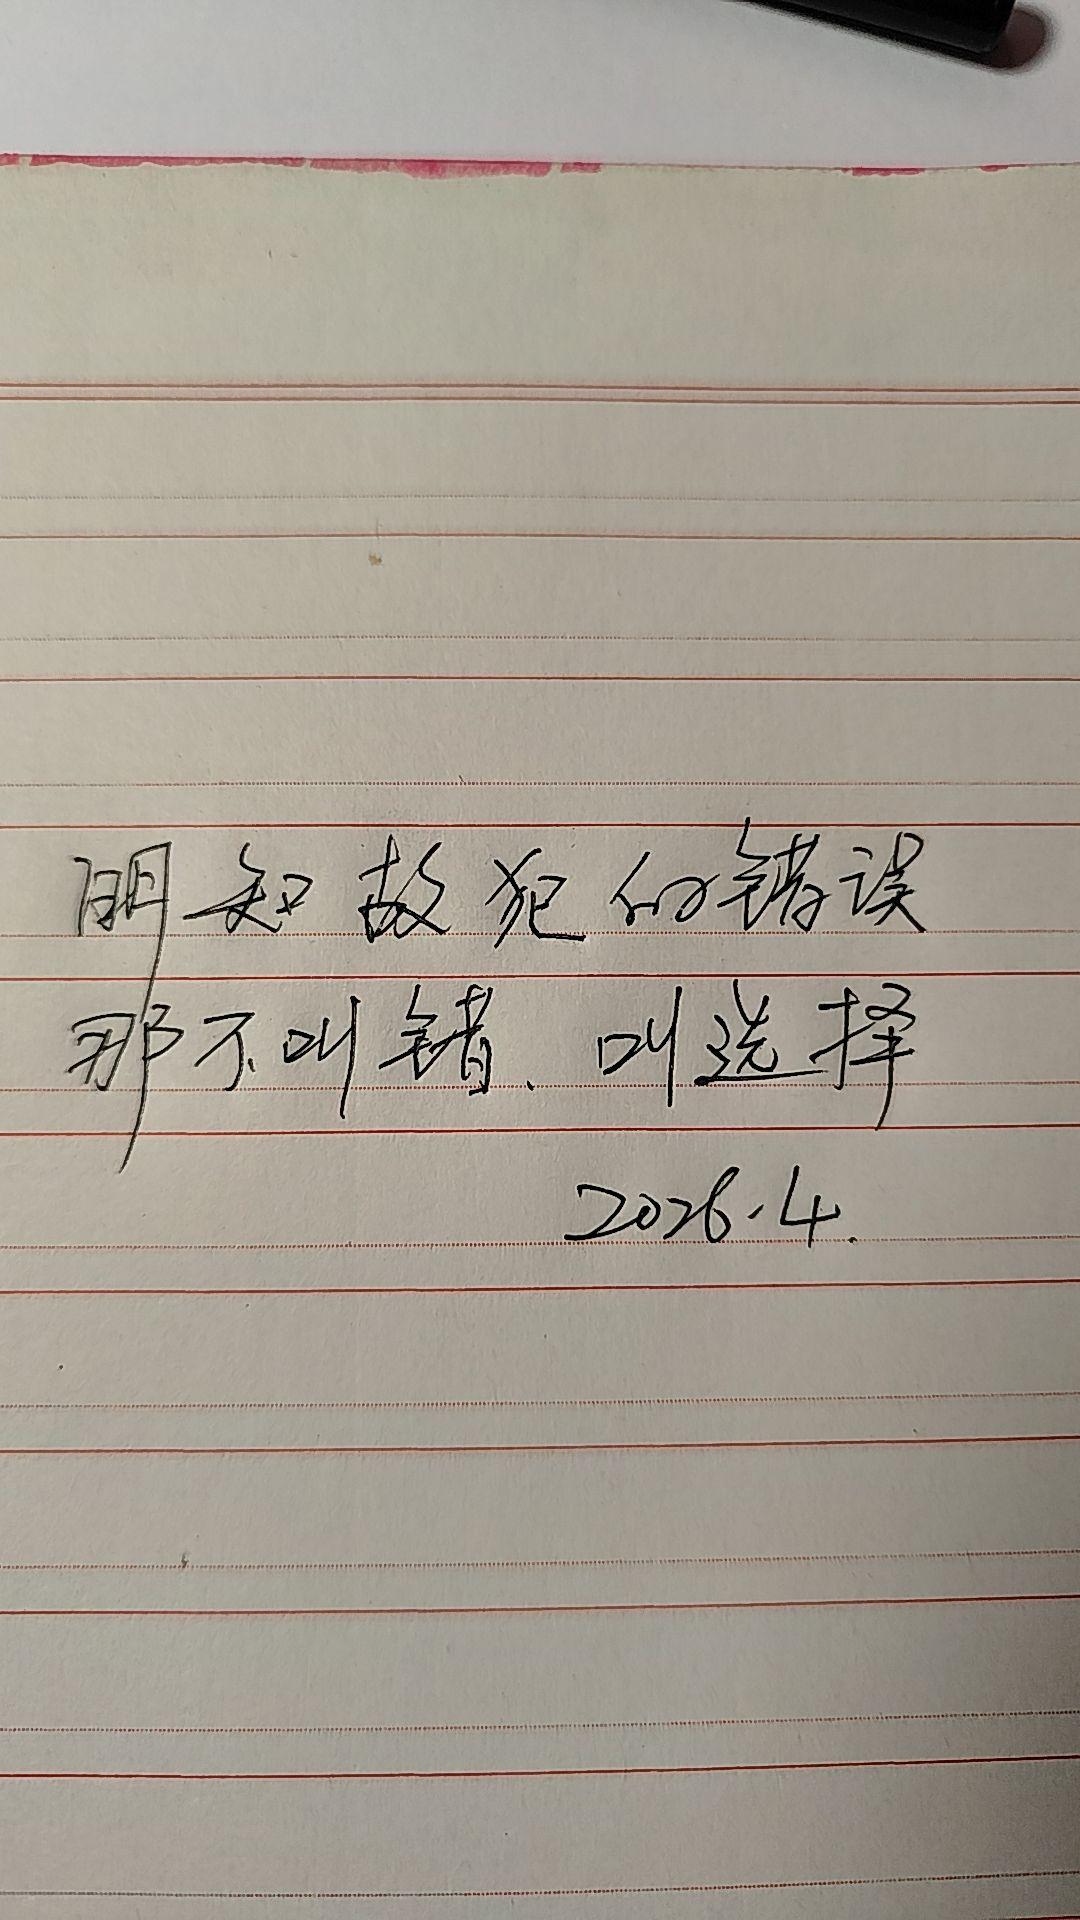 明知故犯的错误
那不叫错、叫选择
2026.4.